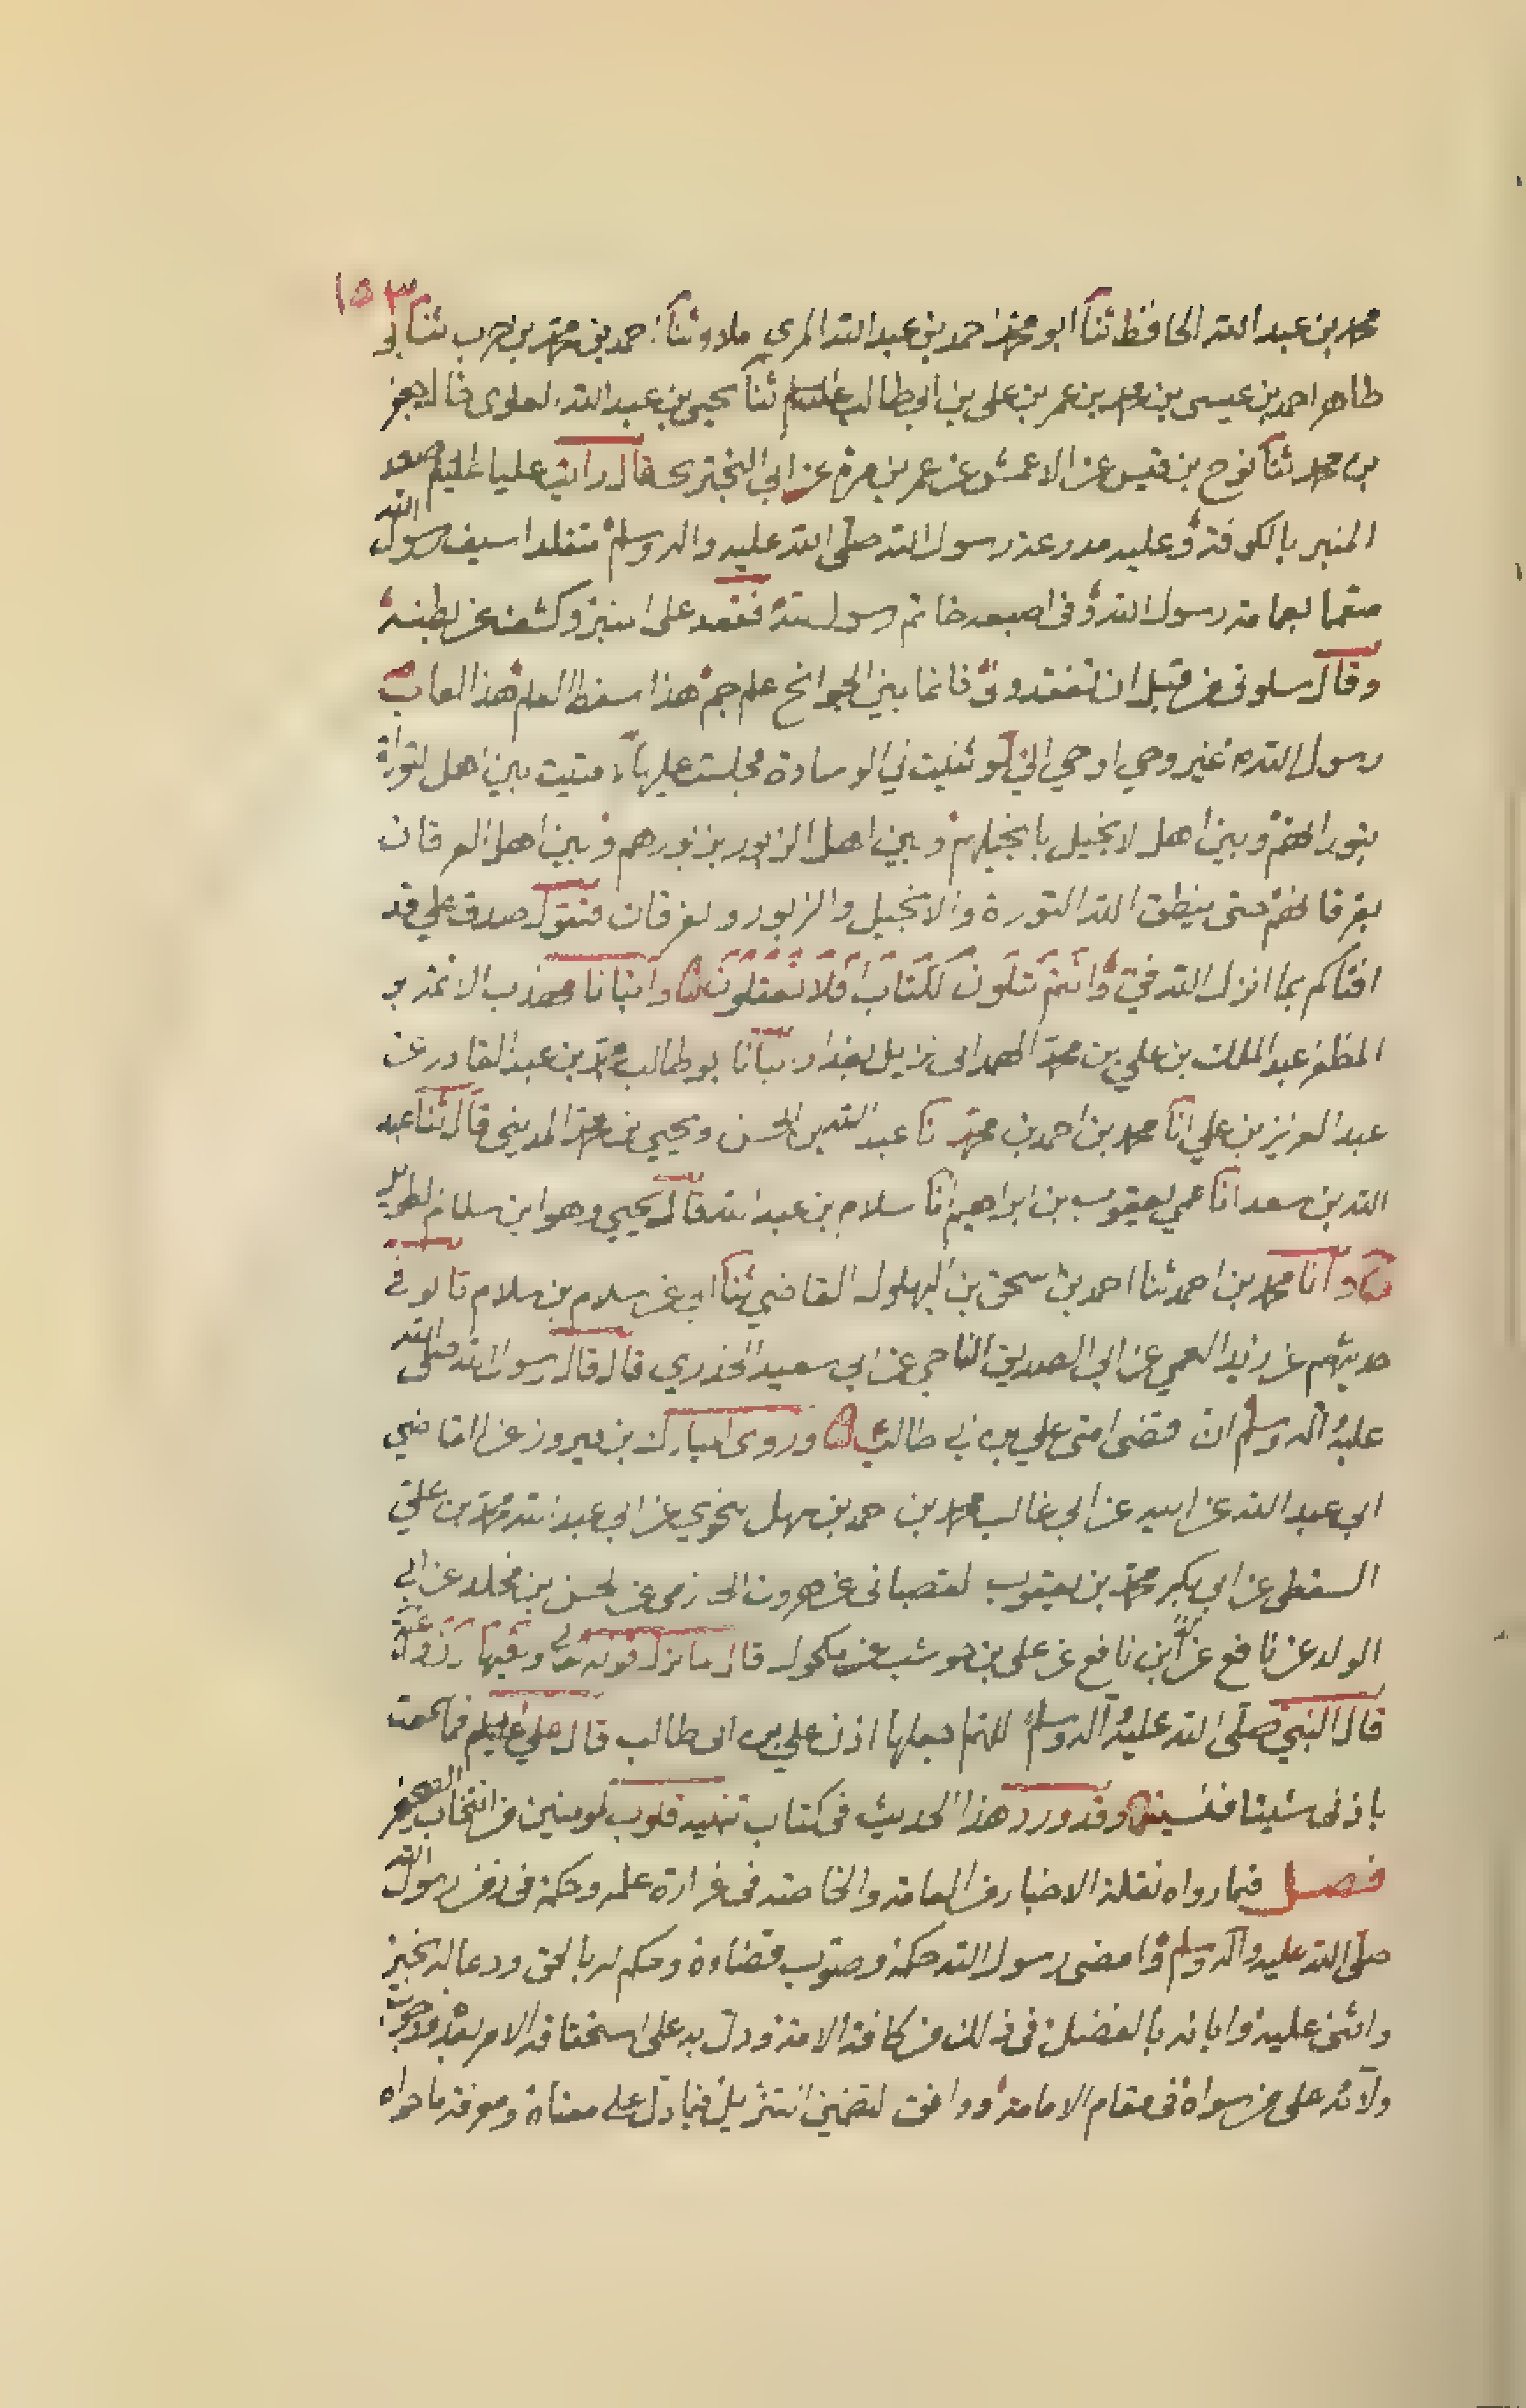 ١٥٣
محمد بن عبد الله الحافظ ثنا ابو محمد احمد بن عبد الله المزي املاء وثنا احمد بن محمد بن حرب ثنا ابو
طاهر احمد بن عيسى بن محمد بن عمر بن علي بن ابي طالب عليه السلام ثنا يحيى بن عبد الله العلوي خال جعفر
بن محمد ثنا نوح بن قيس عن الاعمش عن عمر بن مرة عن ابي البختري قال رأيت عليا عليه صعد
المنبر بالكوفة وعليه مدرعة رسول الله صلى الله عليه واله وسلم متقلدا سيف رسول الله
متعمما بعمامة رسول الله وفي اصبعه خاتم رسول الله فقعد على المنبر وكشف عن بطنه
وقال سلوني من قبل ان تفقدوني فانما بين الجوانح علم جم هذا سفط العلم هذا لعاب
رسول الله من غير وحي اوحي الي لو ثنيت لي الوسادة فجلست عليها لافتيت بين اهل التوراة
بتوراتهم وبين اهل الانجيل بانجيلهم وبين اهل الزبور بزبورهم وبين اهل الفرقان
بفرقانهم حتى ينطق الله التورة والانجيل والزبور والفرقان فتقول صدق علي قد
افتاكم بما انزل الله في وانتم تتلون الكتاب افلا تعقلون وانبانا مهذب الائمة ابو
المظفر عبد الملك بن علي بن محمد الهمداني نزيل بغداد انبانا ابو طالب محمد بن عبد القادر عن
عبد العزيز بن علي انا محمد بن احمد بن محمد نا عبد الله بن الحسن ويحيى بن محمد المديني قال ثنا عبيد
الله بن سعد انا عمي يعقوب بن ابراهيم انا سلام بن عبد الله قال يحيى وهو ابن سلام الطويل
وانا محمد بن احمد ثنا احمد بن اسحق بن البهلول القاضي ثنا ابي عن سلام بن سلام قالوا في
حديثهم عن زيد العمي عن ابي الصديق الناجي عن ابي سعيد الخدري قال قال رسول الله صلى الله
عليه واله وسلم ان اقضى امتي علي بن ابي طالب وروى المبارك بن سرور عن القاضي
ابي عبد الله عن ابيه عن ابي غالب محمد بن احمد بن سهل النحوي عن ابي عبد الله محمد بن علي
السقطي عن ابي بكر محمد بن يعقوب عن هرون عن الحسن بن مخلد عن ابي
الوليد عن نافع عن ابن نافع عن علي بن حوشب عن مكحول قال ما نزل قوله تعالى وتعيها اذن واعية
قال النبي صلى الله عليه واله وسلم اللهم اجعلها اذن علي بن ابي طالب قال علي عليه السلم فما سمعت
باذني شيئا فنسيته وقد ورد هذا الحديث في كتاب تنبيه قلوب المومنين من انتخاب
فصل فيما رواه نقلة الاخبار من العامة والخاصة في غزارة علمه وحكمه في زمن رسول الله
صلى الله عليه واله وسلم وامضى رسول الله حكمه وصوب قضاءه وحكم له بالحق ودعا له بخير
واثنى عليه وابانه بالفضل في ذلك من كافة الامة ودل به على استحقاقه الامر بعده ووجوب
ولايته على من سواه في مقام الامامة ووافق لتضمن التنزيل فيما دل على معناه ومعرفة ما حواه